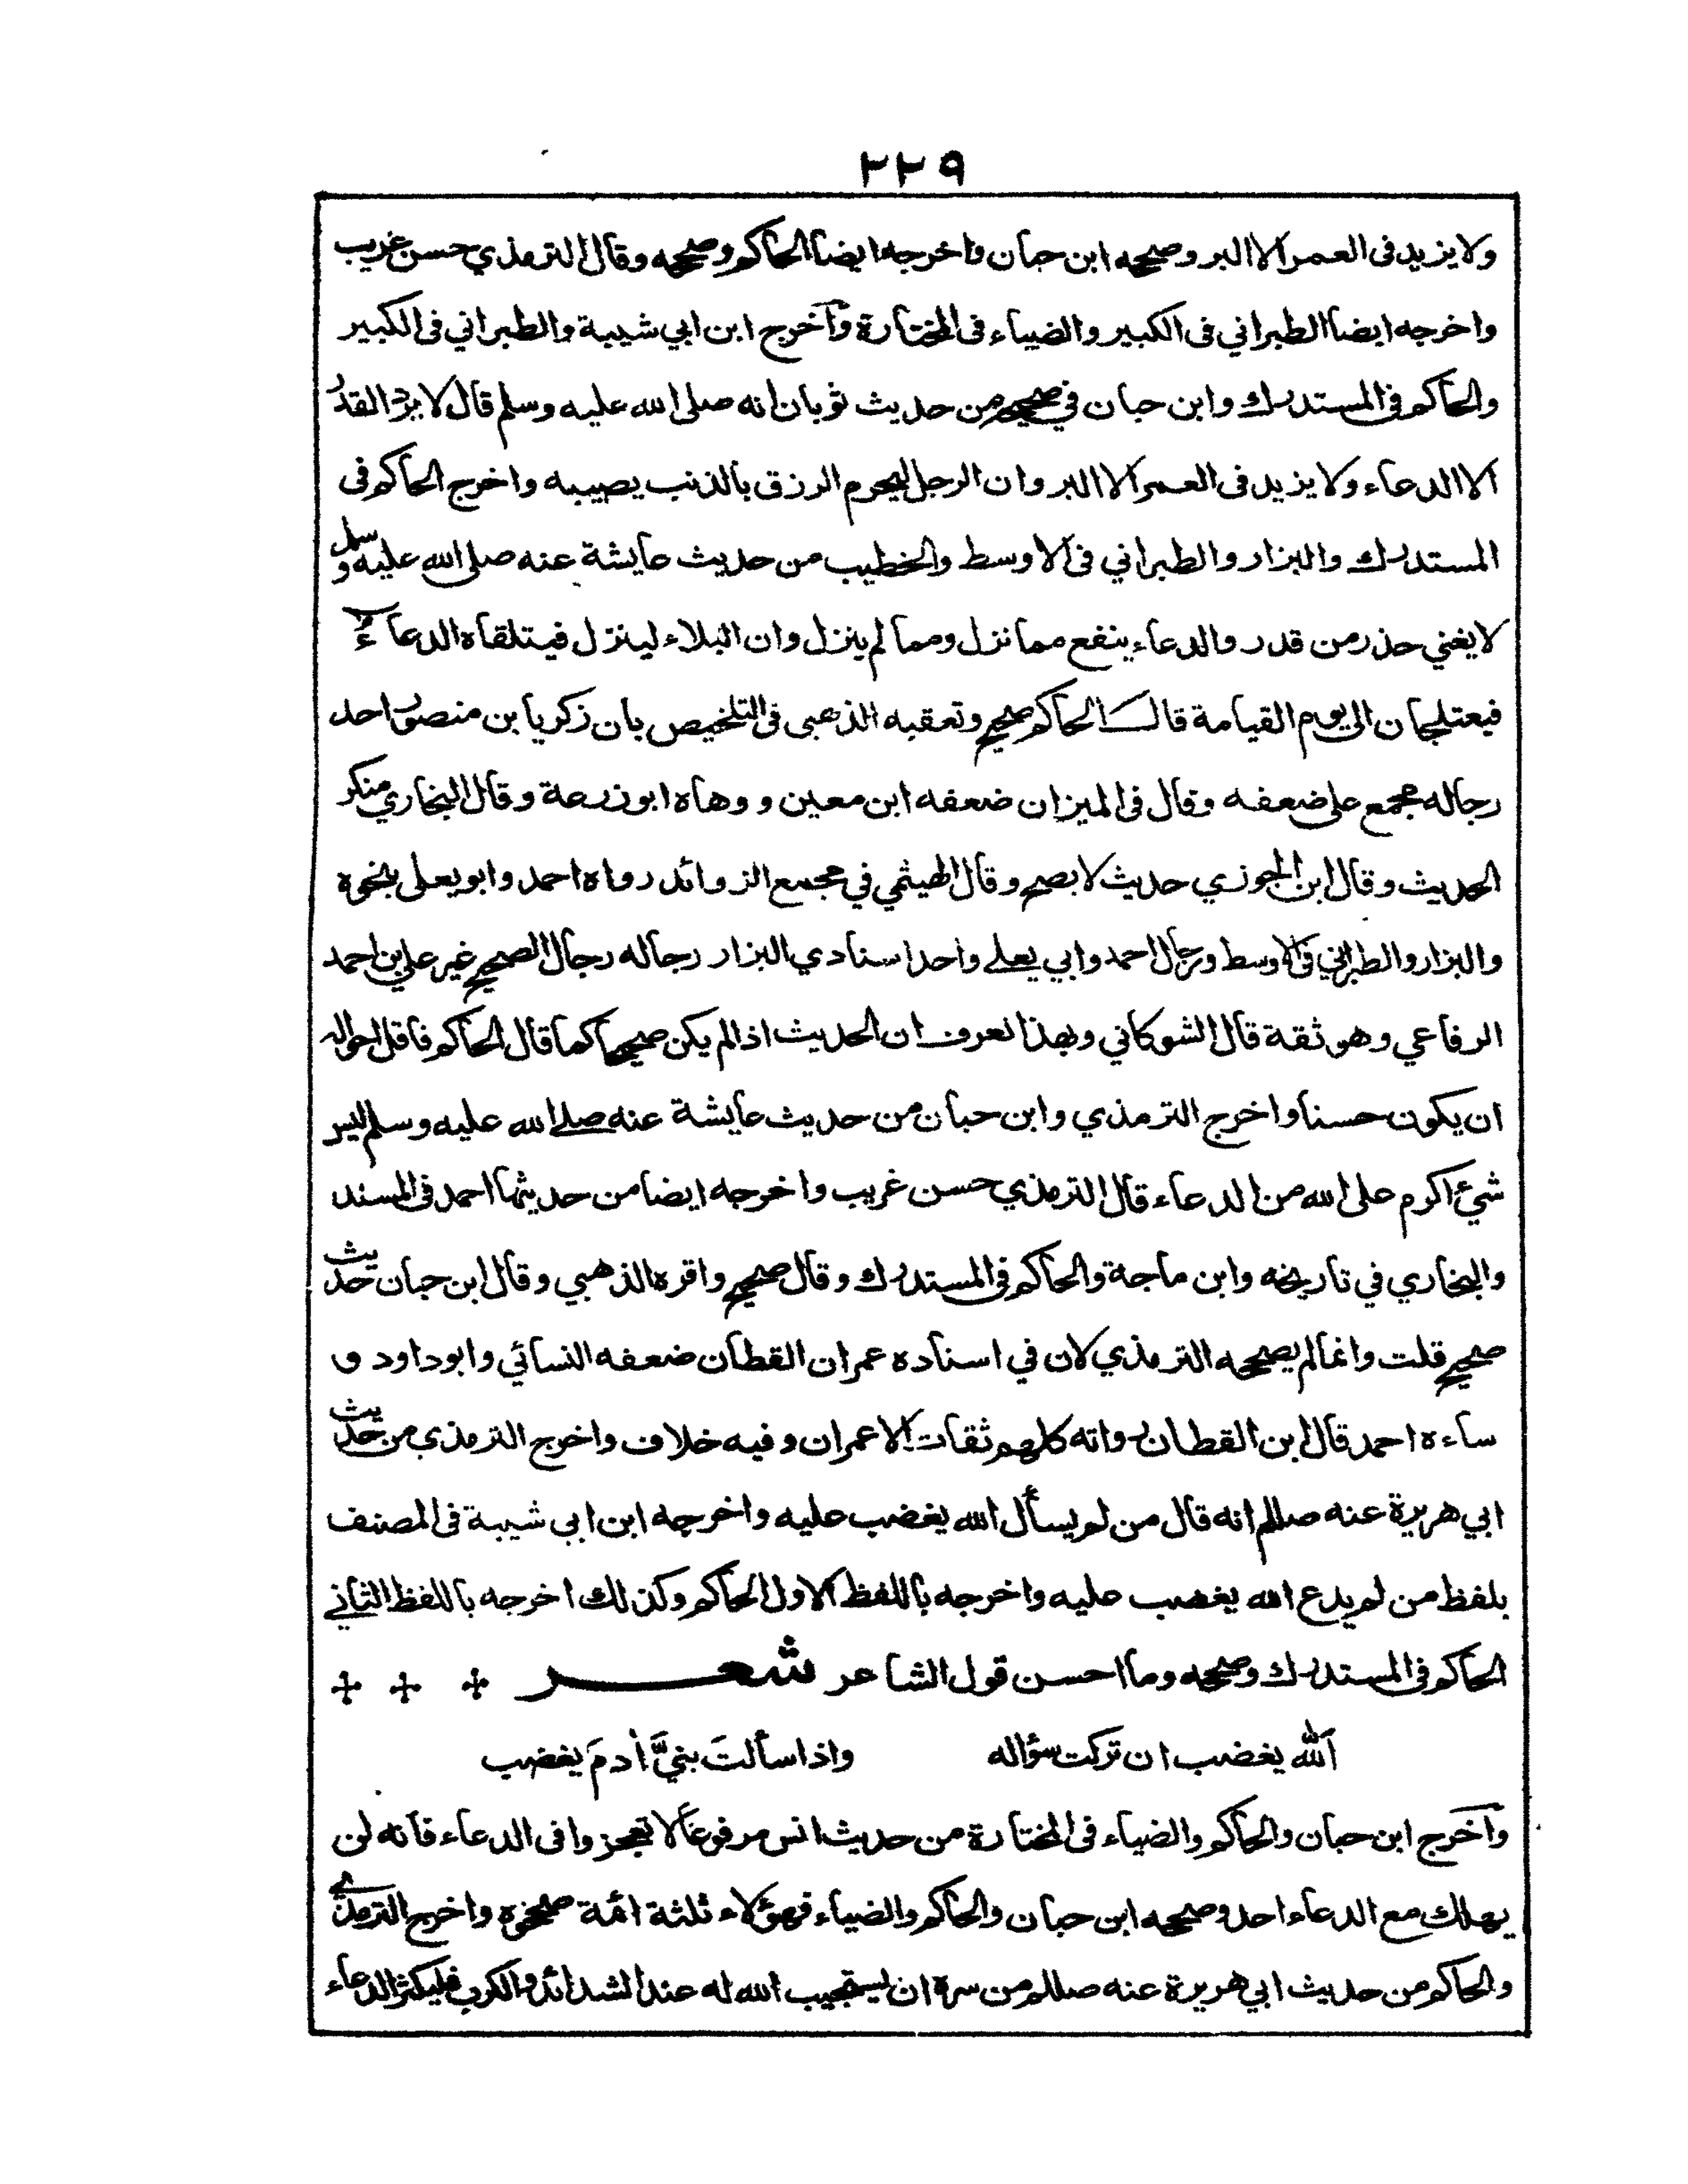 ٢٢٩
ولا يزيد فى العمر الا البر وصححه ابن حبان واخرجه ايضا الحاكم وصححه وقال الترمذي حسن غريب
واخرجه ايضا الطبراني فى الكبير والضياء فى المختارة وآخرج ابن ابي شيبة والطبراني فى الكبير
والحاكم فى المستدرك وابن حبان في صحيحه من حديث ثوبان انه صلى الله عليه وسلم قال لا يرد القدر
الا الدعاء ولا يزيد فى العمر الا البر وان الرجل ليحرم الرزق بالذنب يصيبه واخرج الحاكم فى
المستدرك والبزار والطبراني فى الاوسط والخطيب من حديث عايشة عنه صلى الله عليه وسلم
لا يغني حذر من قدر والدعاء ينفع مما نزل ومما لم ينزل وان البلاء لينزل فيتلقاه الدعاء
فيعتلجان الى يوم القيامة قال الحاكم صحيح وتعقبه الذهبى فى التلخيص بان زكريا بن منصور احد
رجاله مجمع على ضعفه وقال فى الميزان ضعفه ابن معين و وهاه ابو زرعة وقال البخاري منكر
الحديث وقال ابن الجوزي حديث لا يصح وقال الهيثمي في مجمع الزوائد رواه احمد وابو يعلى بنحوه
والبزار والطبراني فى الاوسط ورجال احمد وابي يعلے واحد اسنادي البزار رجاله رجال الصحيح غير علي بن احمد
الرفاعي وهو ثقة قال الشوكاني وبهذا نعرف ان الحديث اذا لم يكن صحيحا كما قال الحاكم فاقل احواله
ان يكون حسنا واخرج الترمذي وابن حبان من حديث عايشة عنه صلے الله عليه وسلم ليس
شيئ اكرم على الله من الدعاء قال الترمذي حسن غريب واخرجه ايضا من حديثها احمد فى المسند
والبخاري في تاريخه وابن ماجة والحاكم فى المستدرك وقال صحيح واقره الذهبي وقال ابن حبان حديث
صحيح قلت وانما لم يصححه الترمذي لان في اسناده عمران القطان ضعفه النسائي وابو داود و
ساءه احمد قال ابن القطان رواته كلهم ثقات الا عمران وفيه خلاف واخرج الترمذى من حديث
ابي هريرة عنه صللم انه قال من لم يسأل الله يغضب عليه واخرجه ابن ابي شيبة فى المصنف
بلفظ من لم يدع الله يغضب عليه واخرجه باللفظ الاول الحاكم وكذلك اخرجه باللفظ الثاني
الحاكم فى المستدرك وصححه وما احسن قول الشاعر شعر
اَلله يغضب ان تركت سؤاله واذا سألتَ بنيَّ اٰدمَ يغضب
وآخرج ابن حبان والحاكم والضياء فى المختارة من حديث انس مرفوعا لا تعجزوا فى الدعاء فانه لن
يهلك مع الدعاء احد وصححه ابن حبان والحاكم والضياء فهؤلاء ثلثة ائمة صححوه واخرج الترمذي
والحاكم من حديث ابي هريرة عنه صللم من سره ان يستجيب الله له عند الشدائد والكرب فليكثر الدعاء